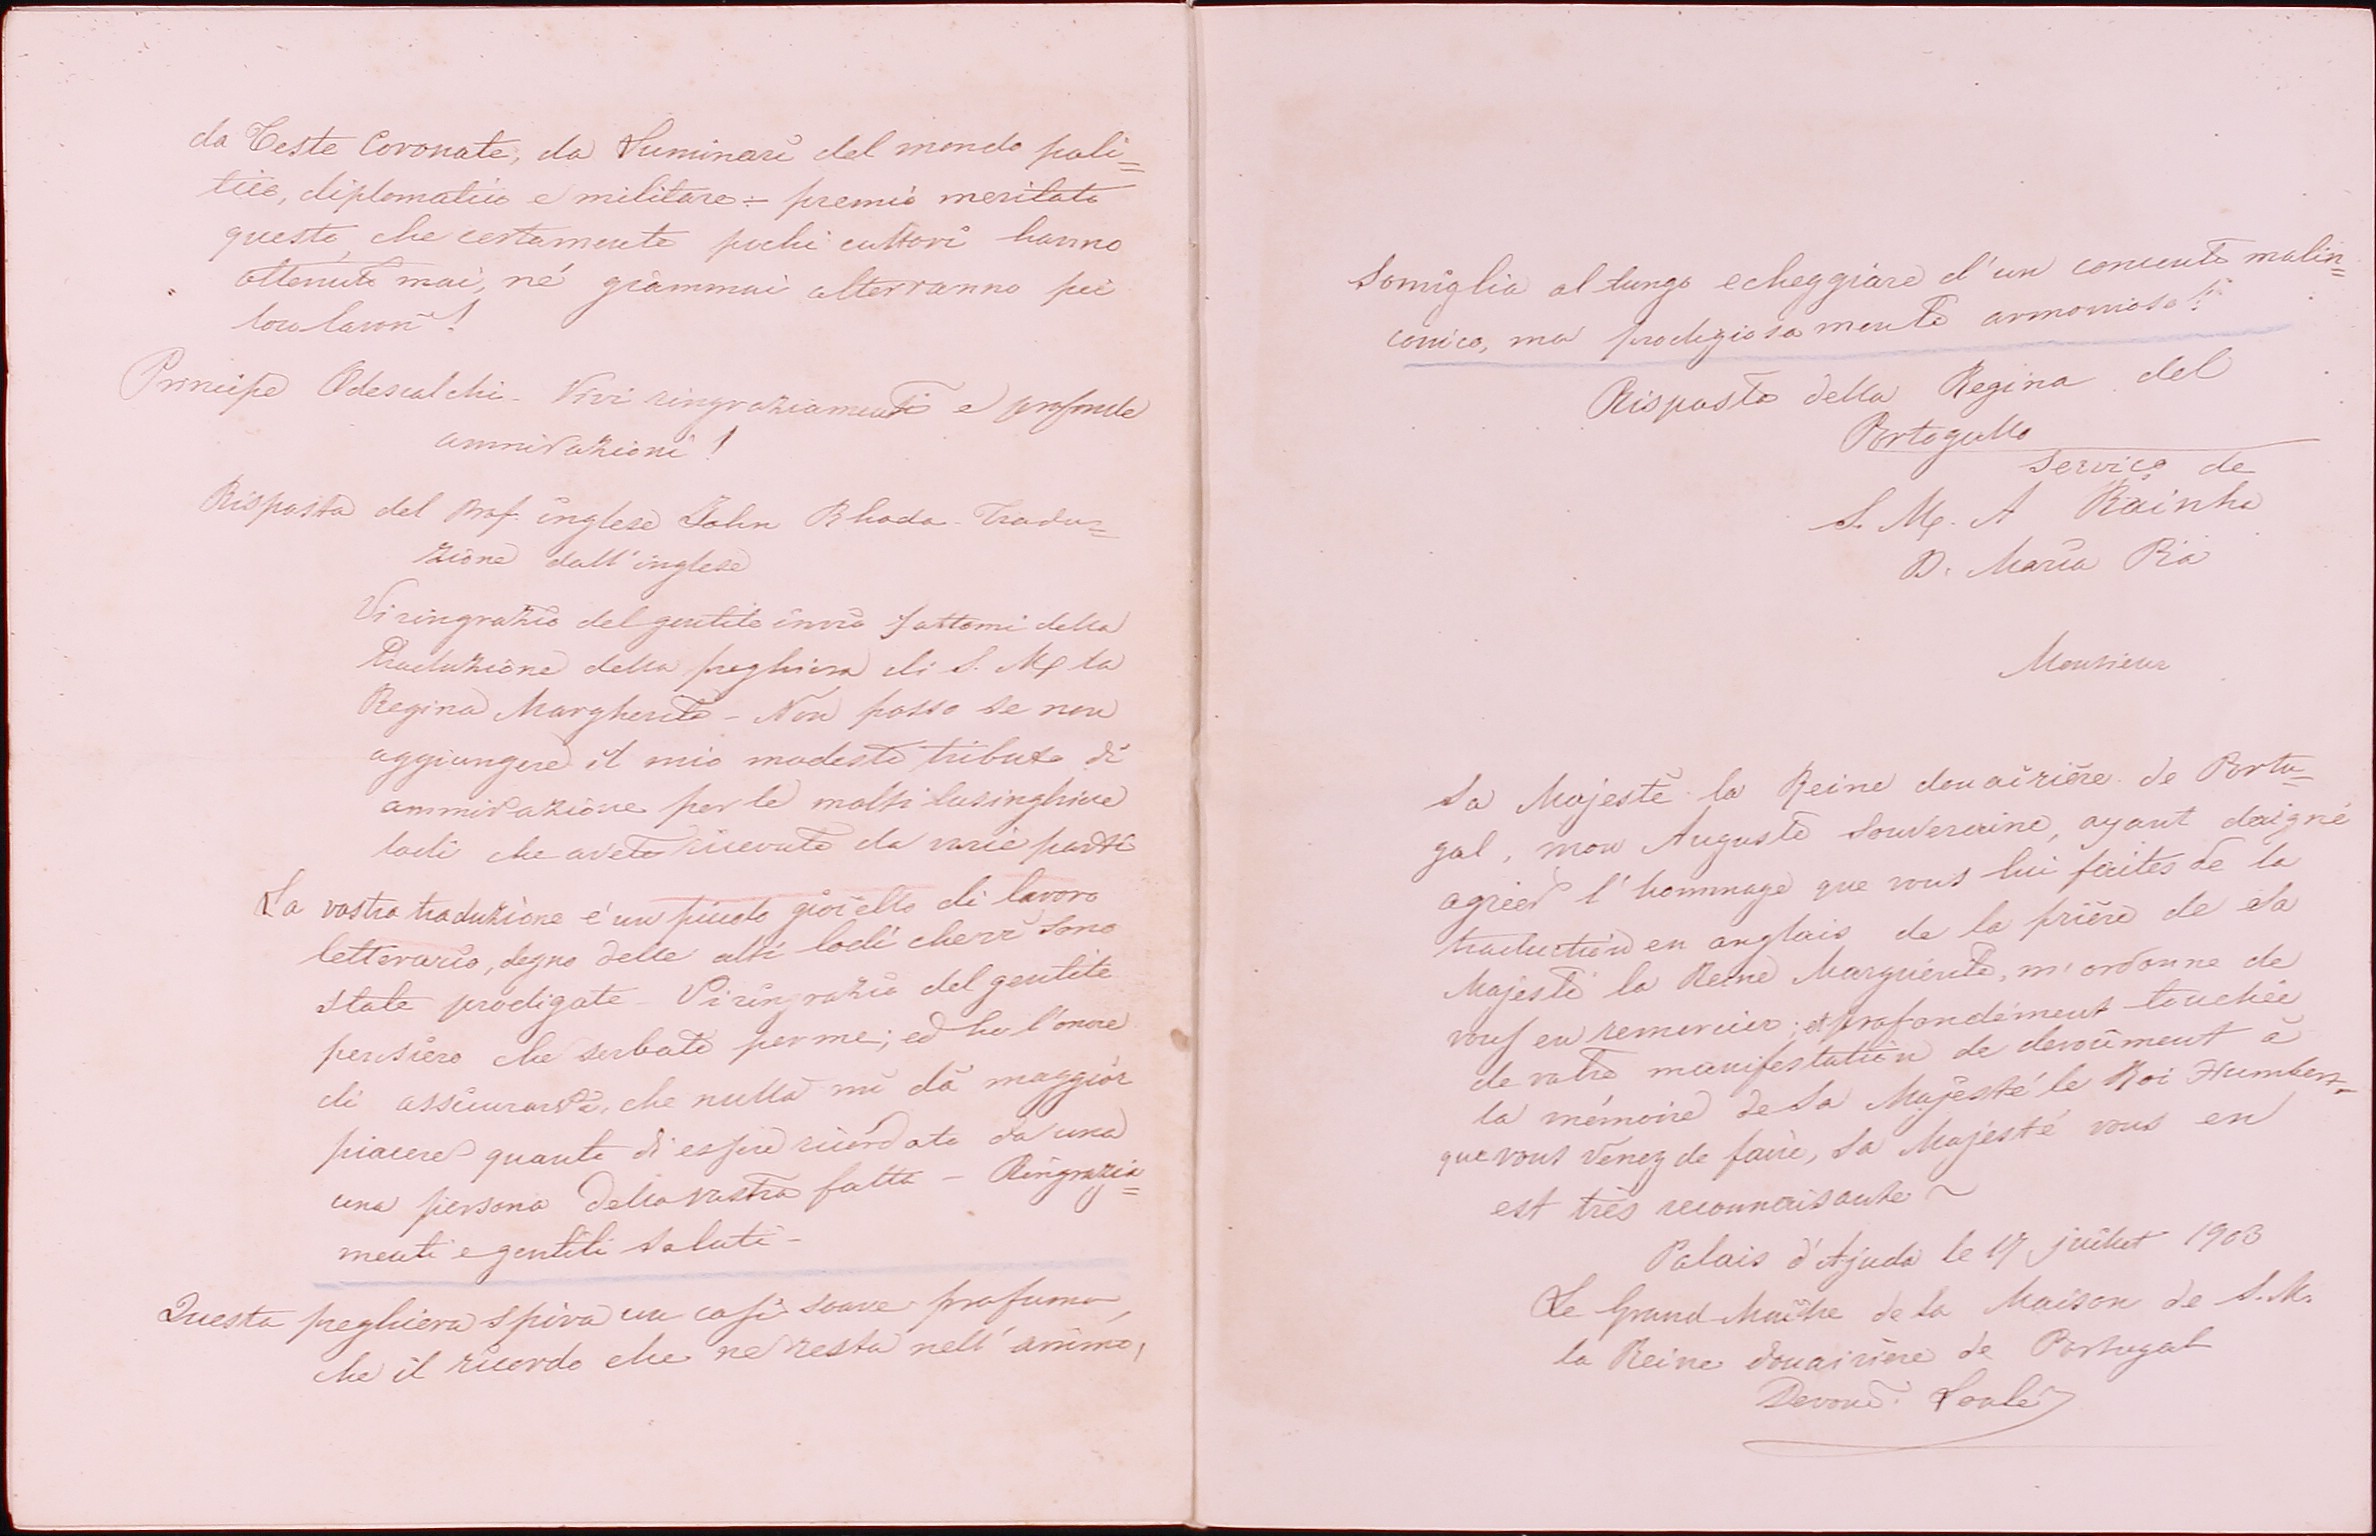 da Teste Coronate, da Luminari del mondo poli=
tico, diplomatico e militare: premio meritato
questo, che certamente pochi cultori hanno
ottenuto mai, né giammai otterranno pei
loro lavori!
Principe Odescalchi - Vivi ringraziamenti e profonde
ammirazioni!
Risposta del Prof. inglese John Rhoda - Tradu=
zione dall'inglese
Vi ringrazio del gentile invio fattomi della
Traduzione della preghiera di S. M. la
Regina Margherita - Non posso se non
aggiungere il mio modesto tributo di
ammirazione per le molti lusinghiere
lodi che avete ricevuto da varie parti
La vostra traduzione è un piccolo gioiello di lavoro
letterario, degno delle alti lodi che vi sono
state prodigate - Vi ringrazio del gentile
pensiero che serbate per me; ed ho l'onore
di assicurarvi, che nulla mi dà maggior
piacere quanto di essere ricordato da una
una persona della vostra fatta - Ringrazia=
menti e gentili saluti -
Questa preghiera spira un così soave profumo,
che il ricordo che ne resta nell'animo,
somiglia al lungo echeggiare d'un concento malin=
conico, ma prodigiosamente armonioso!
Risposta della Regina del
Portogallo
Serviço de
S. M. A Rainha
D. Maria Pia
Monsieur
Sa Majesté la Reine douairière de Portu=
gal, mon Auguste Souveraine, ayant daigné
agréer l'hommage que vous lui faites de la
traduction en anglais de la prière de Sa
Majesté la Reine Marguerite, m'ordonne de
vous en remercier; et profondément touchée
de votre manifestation de devoûment à
la mémoire de Sa Majesté le Roi Humbert
que vous venez de faire, Sa Majesté vous en
est très reconnaisante ~
Palais d'Ajuda le 17 juillet 1903
Le Grand Maître de la Maison de S. M.
la Reine douairière de Portugal
Devoué Loulé